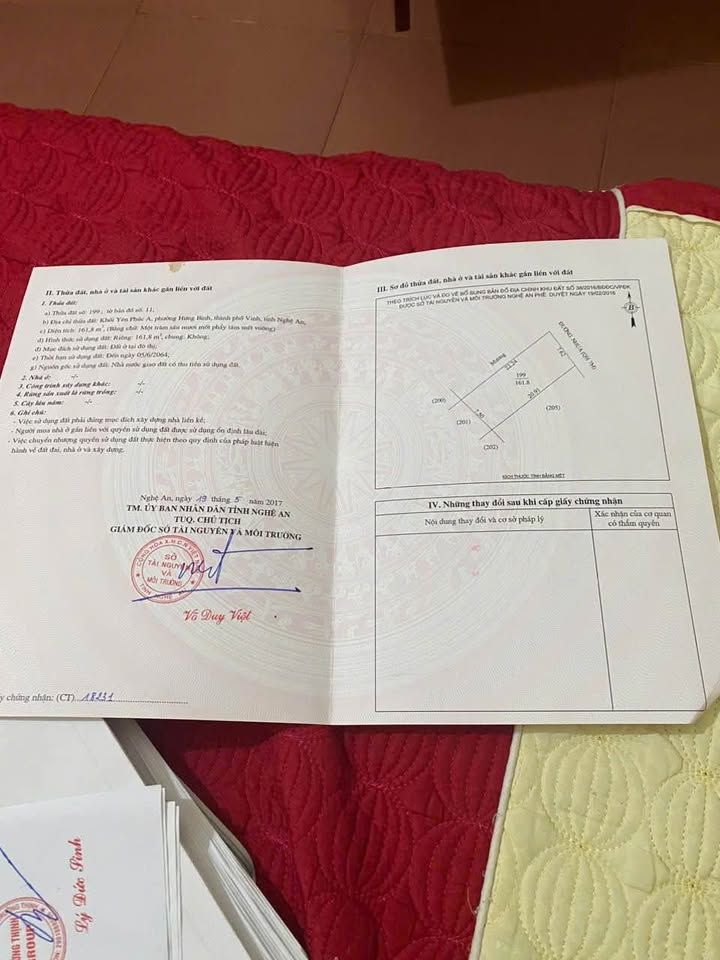 II. Thửa đất, nhà ở và tài sản khác gắn liền với đất
1. Thửa đất:
a) Thửa đất số: 199 ; tờ bản đồ số: 11;
b) Địa chỉ thửa đất: Khối Yên Phúc A, phường Hưng Bình, thành phố Vinh, tỉnh Nghệ An,
c) Diện tích: 161,8 m², (Bằng chữ: Một trăm sáu mươi mốt phẩy tám mét vuông)
d) Hình thức sử dụng đất: Riêng: 161,8 m², chung: Không;
đ) Mục đích sử dụng đất: Đất ở tại đô thị;
e) Thời hạn sử dụng đất: Đến ngày 05/6/2064;
g) Nguồn gốc sử dụng đất: Nhà nước giao đất có thu tiền sử dụng đất.
2. Nhà ở: -/-
3. Công trình xây dựng khác: -/-
4. Rừng sản xuất là rừng trồng: -/-
5. Cây lâu năm: -/-
6. Ghi chú:
- Việc sử dụng đất phải đúng mục đích xây dựng nhà liền kề;
- Người mua nhà ở gắn liền với quyền sử dụng đất được sử dụng ổn định lâu dài;
- Việc chuyển nhượng quyền sử dụng đất thực hiện theo quy định của pháp luật hiện
hành về đất đai, nhà ở và xây dựng.
Nghệ An, ngày 19 tháng 5 năm 2017
TM. ỦY BAN NHÂN DÂN TỈNH NGHỆ AN
TUQ. CHỦ TỊCH
GIÁM ĐỐC SỞ TÀI NGUYÊN VÀ MÔI TRƯỜNG
CỘNG HÒA X.H.C.N VIỆT NAM
SỞ
TÀI NGUYÊN
VÀ
MÔI TRƯỜNG
TỈNH NGHỆ AN
Võ Duy Việt
y chứng nhận: (CT) 18231
III. Sơ đồ thửa đất, nhà ở và tài sản khác gắn liền với đất
THEO TRÍCH LỤC VÀ ĐO VẼ BỔ SUNG BẢN ĐỒ ĐỊA CHÍNH KHU ĐẤT SỐ 38/2016/BĐĐC/VPĐK
ĐƯỢC SỞ TÀI NGUYÊN VÀ MÔI TRƯỜNG NGHỆ AN PHÊ DUYỆT NGÀY 19/02/2016
B
ĐƯỜNG NHỰA (QH 7M)
Mương
22.24
7.62
199
161.8
20.91
7.50
(200)
(201)
(205)
(202)
KÍCH THƯỚC TÍNH BẰNG MÉT
IV. Những thay đổi sau khi cấp giấy chứng nhận
Nội dung thay đổi và cơ sở pháp lý
Xác nhận của cơ quan
có thẩm quyền
Lý Đức Sinh
GROUP